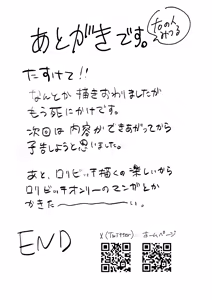 あとがきです。
たすけて!!
なんとか描きおわりましたが
もう死にかけです。
次回は内容ができあがってから
予告しようと思いました。
あと、ロリビッチ描くの楽しいから
ロリビッチオンリーのマンガとか
かきた〜い。
END
X(Twitter)
ホームページ